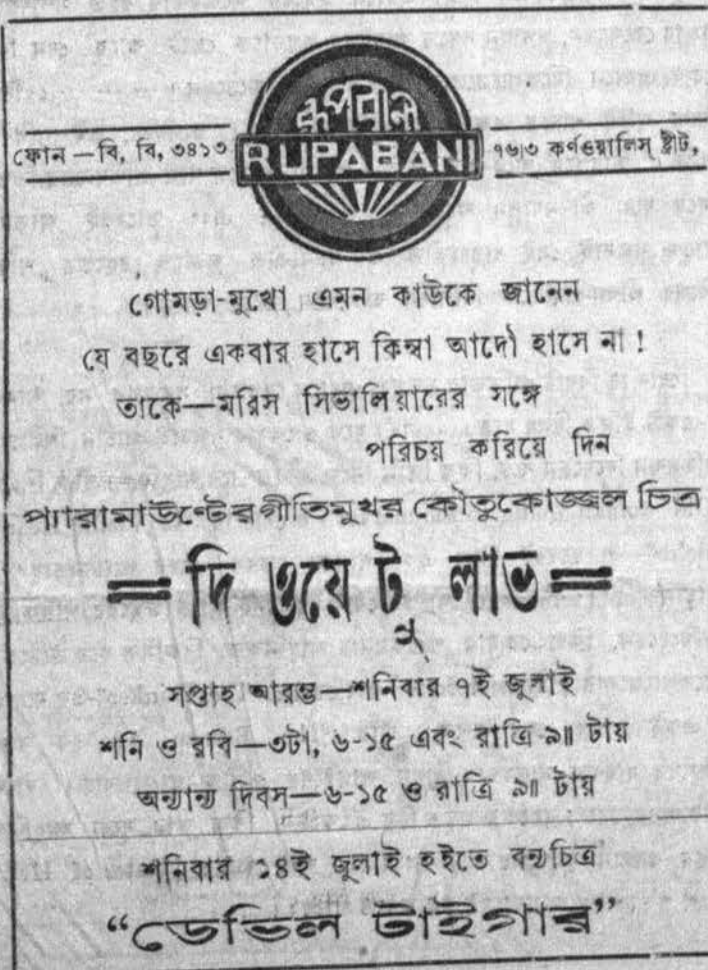 রূপবাণী
ফোন—বি, বি, ৩৪১৩
RUPABANI
৭৬।৩ কর্ণওয়ালিস্ ষ্ট্রীট,
গোমড়া-মুখো এমন কাউকে জানেন
যে বছরে একবার হাসে কিম্বা আদৌ হাসে না !
তাকে—মরিস সিভালিয়ারের সঙ্গে
পরিচয় করিয়ে দিন
প্যারামাউণ্টের গীতিমুখর কৌতুকোজ্জল চিত্র
দি ওয়ে টু লাভ
সপ্তাহ আরম্ভ—শনিবার ৭ই জুলাই
শনি ও রবি—৩টা, ৬-১৫ এবং রাত্রি ৯॥ টায়
অন্যান্য দিবস—৬-১৫ ও রাত্রি ৯॥ টায়
শনিবার ১৪ই জুলাই হইতে বন্যচিত্র
“ডেভিল টাইগার”